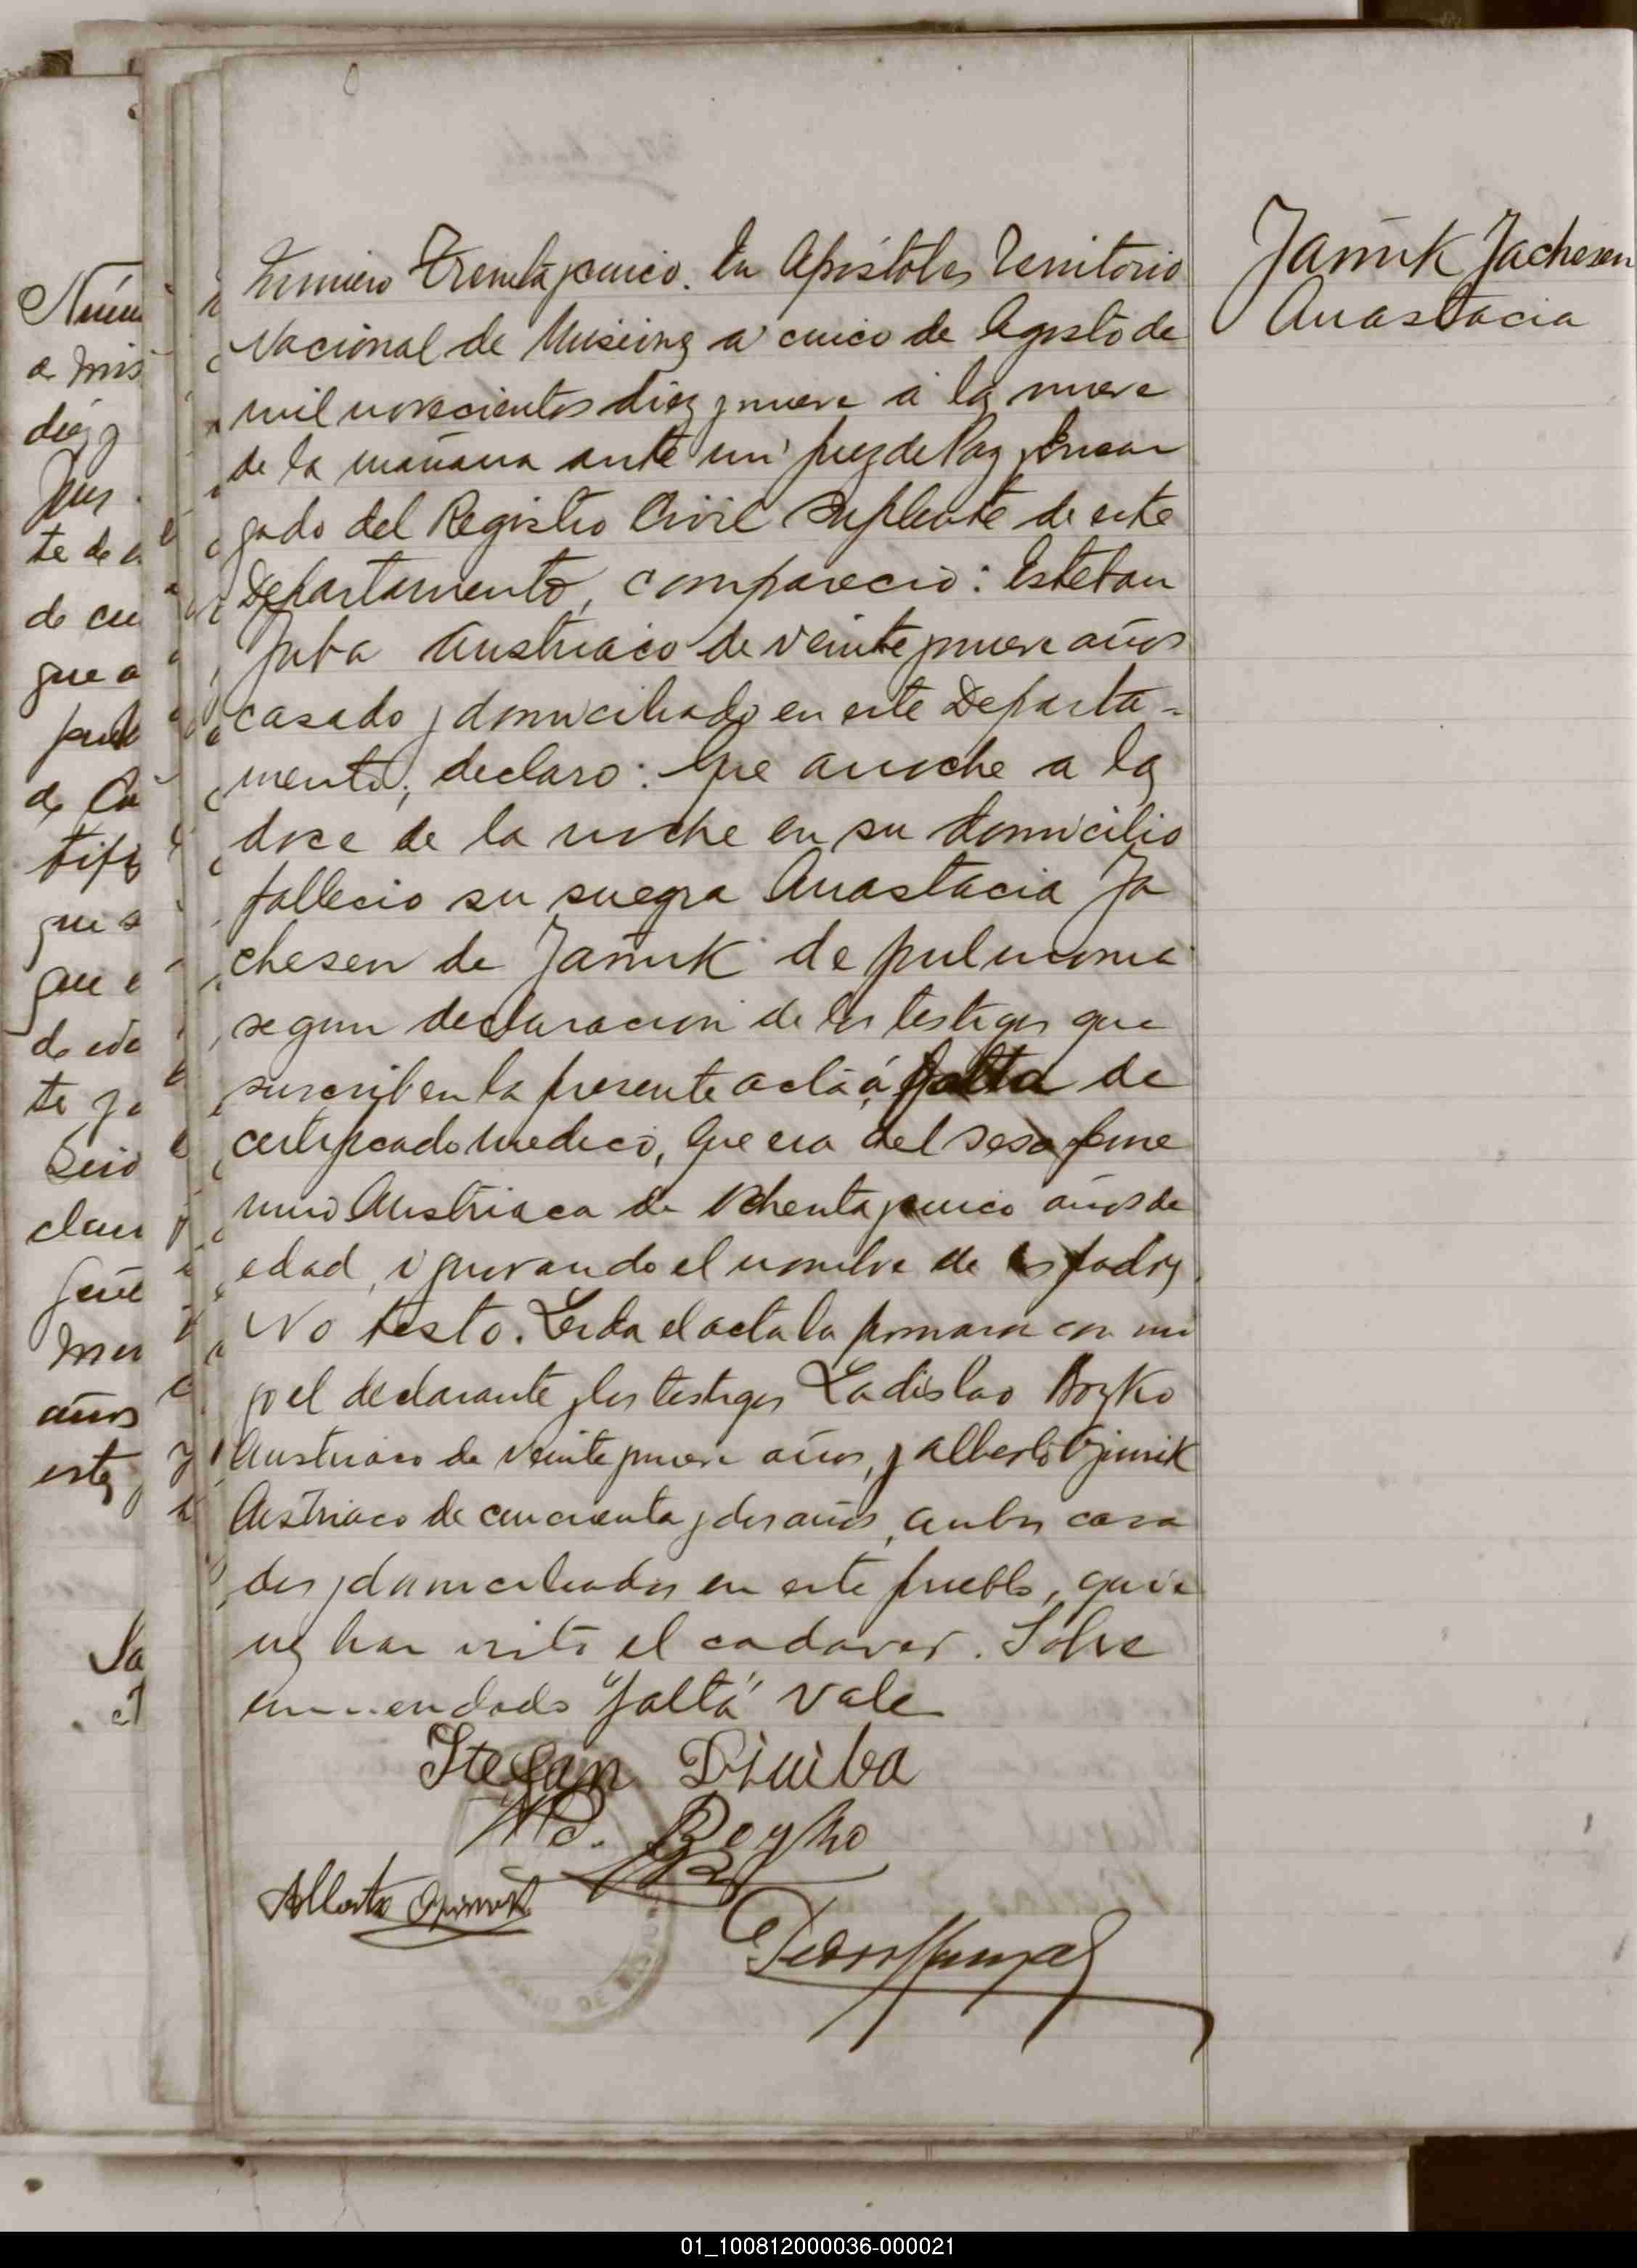 Janük Jachesen
Anastacia
Numero Treinta y cinco. En Apóstoles Territorio
Nacional de Misiones a cinco de Agosto de
mil novecientos diez y nueve a las nueve
de la mañana ante mi Juez de Paz y Encar
gado del Registro Civil Suplente de este
Departamento, compareció: Esteban
Juba Austriaco de veinte y nueve años
casado y domiciliado en este Departa-
mento, declaro: Que anoche a las
doce de la noche en su domicilio
fallecio su suegra Anastacia Ja
chesen de Janük de pulmonia
segun declaracion de los testigos que
suscriben la presente acta á falta de
certificado medico, que era del sexo feme
nino Austriaca de ochenta y cinco años de
edad, ignorando el nombre de los padres
No testo. Leida el acta la firmaron con mi
go el declarante y los testigos Ladislao Boyko
Austriaco de veinte y nueve años, y Alberto
Austriaco de cincuenta y dos años, ambos casa
dos y domiciliados en este pueblo, quie
nes han visto el cadaver. Sobre
enmendado "falta" vale
Stefan Dziuba
Boyko
Alberto
01_100812000036-000021